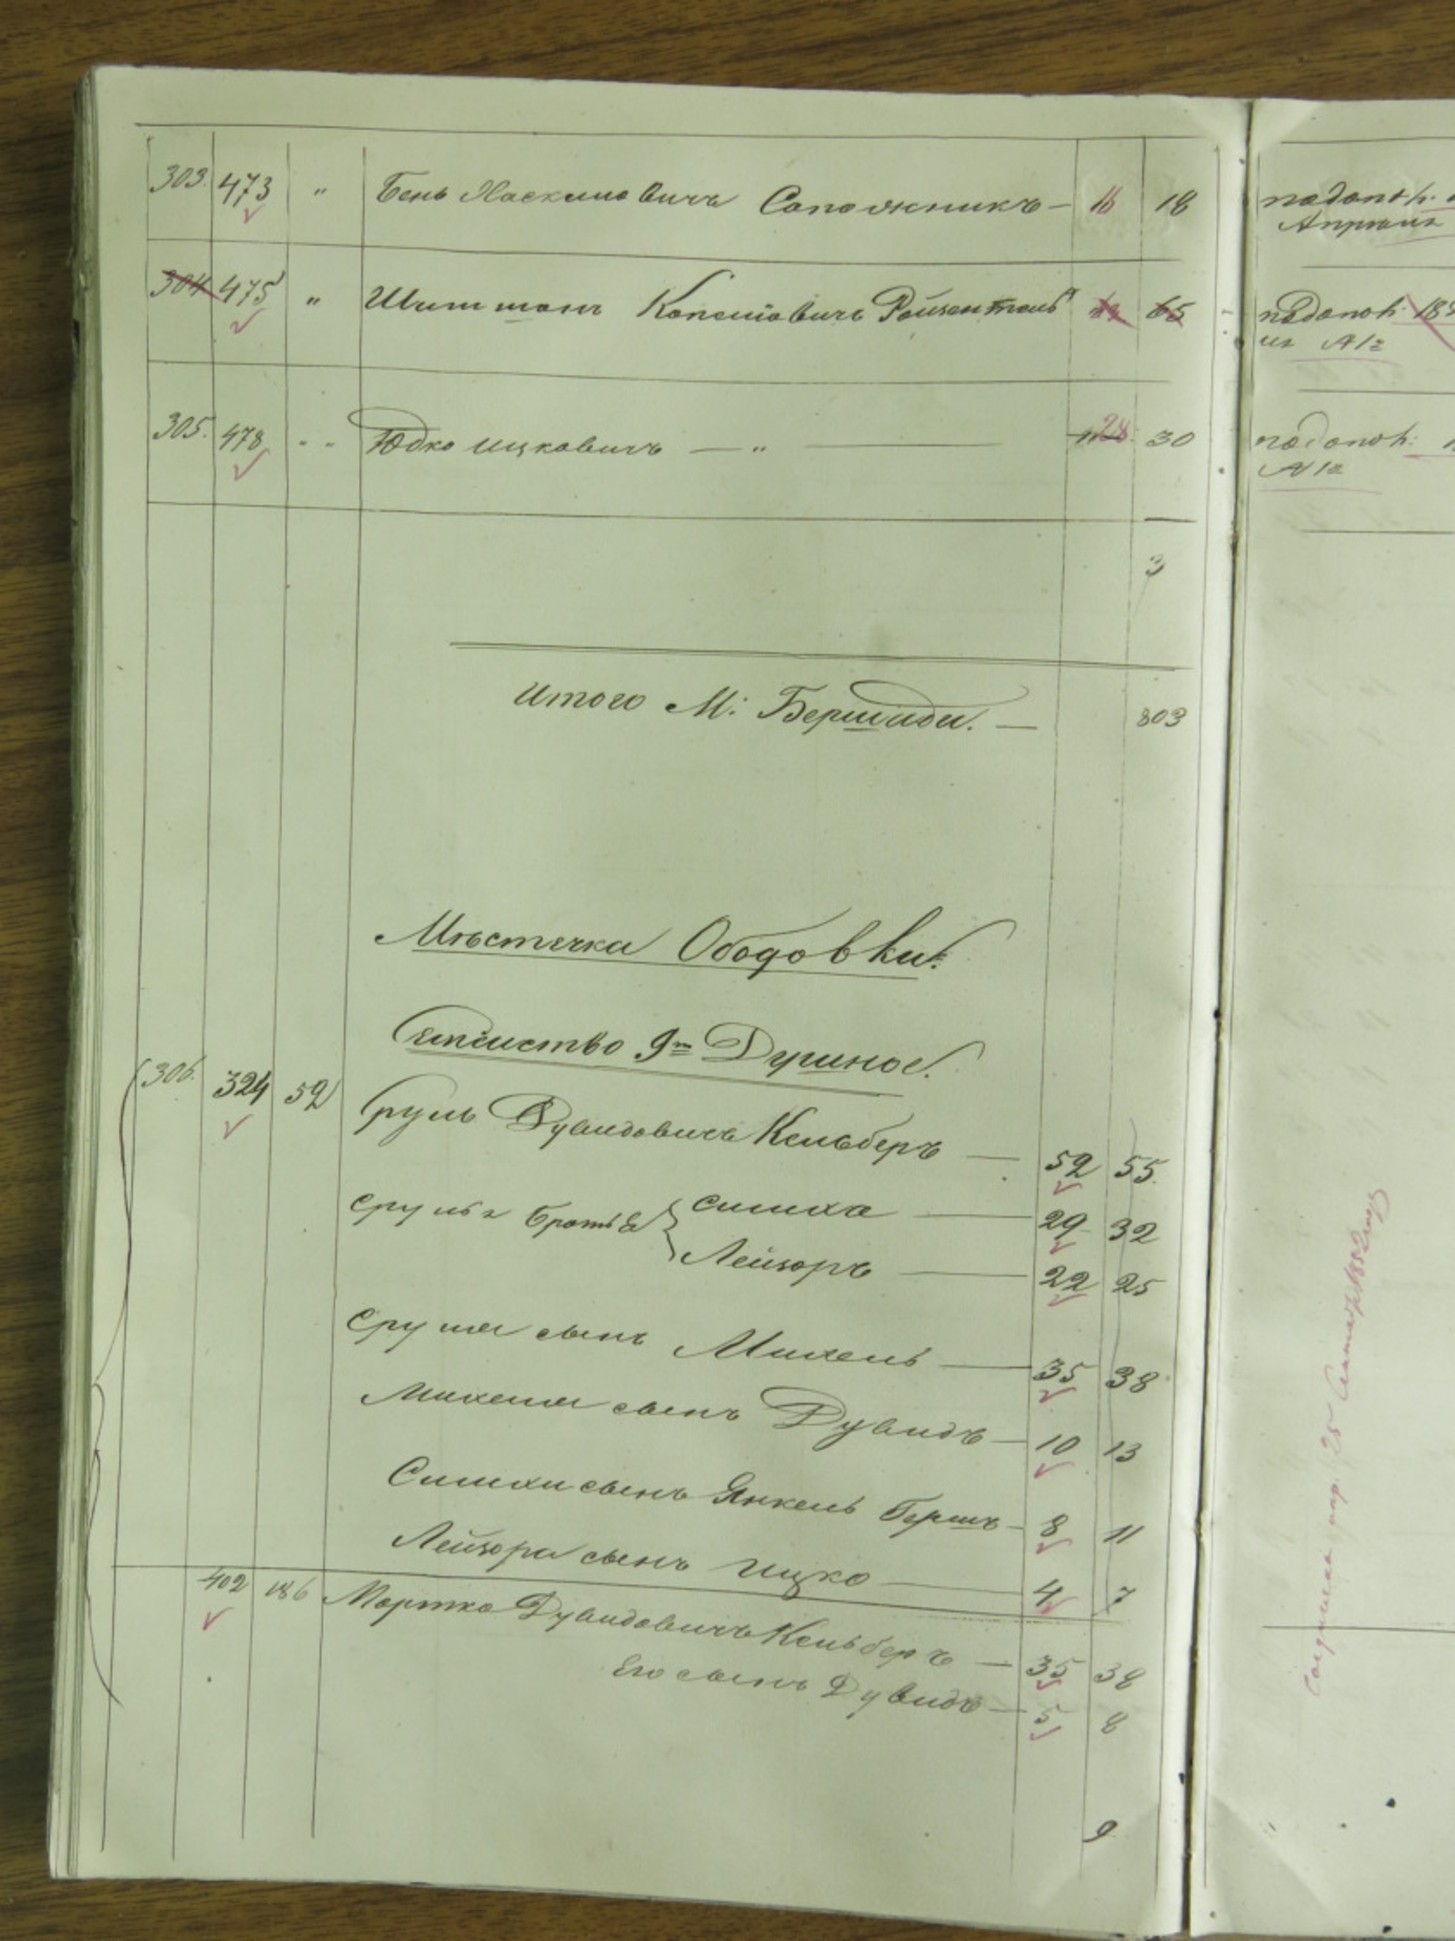 303. 473 " Бень Хаскилевичъ Сапожникъ — 16 18
304 475 " Шитманъ Копелiовичъ Ройзентель 65
305. 478 " " Юдко Ицковичъ — " — 28 30
3
Итого М: Бершади. — 803
Мѣстечка Ободовки.
Семейство 9ть Душное.
306. 324 52 Сруль Дувидовичъ Кельберъ — 52 55.
Сруля братья { Симха — 29 32
Лейзоръ — 22 25
Сруля сынъ Михель — 35 38
Михеля сынъ Дувидъ — 10 13
Симхи сынъ Янкель Гершъ — 8 11
Лейзора сынъ Ицко — 4 7
402 186 Мортко Дувидовичъ Кельберъ — 35 38
Его сынъ Дувидъ — 5 8
9
Апрѣля